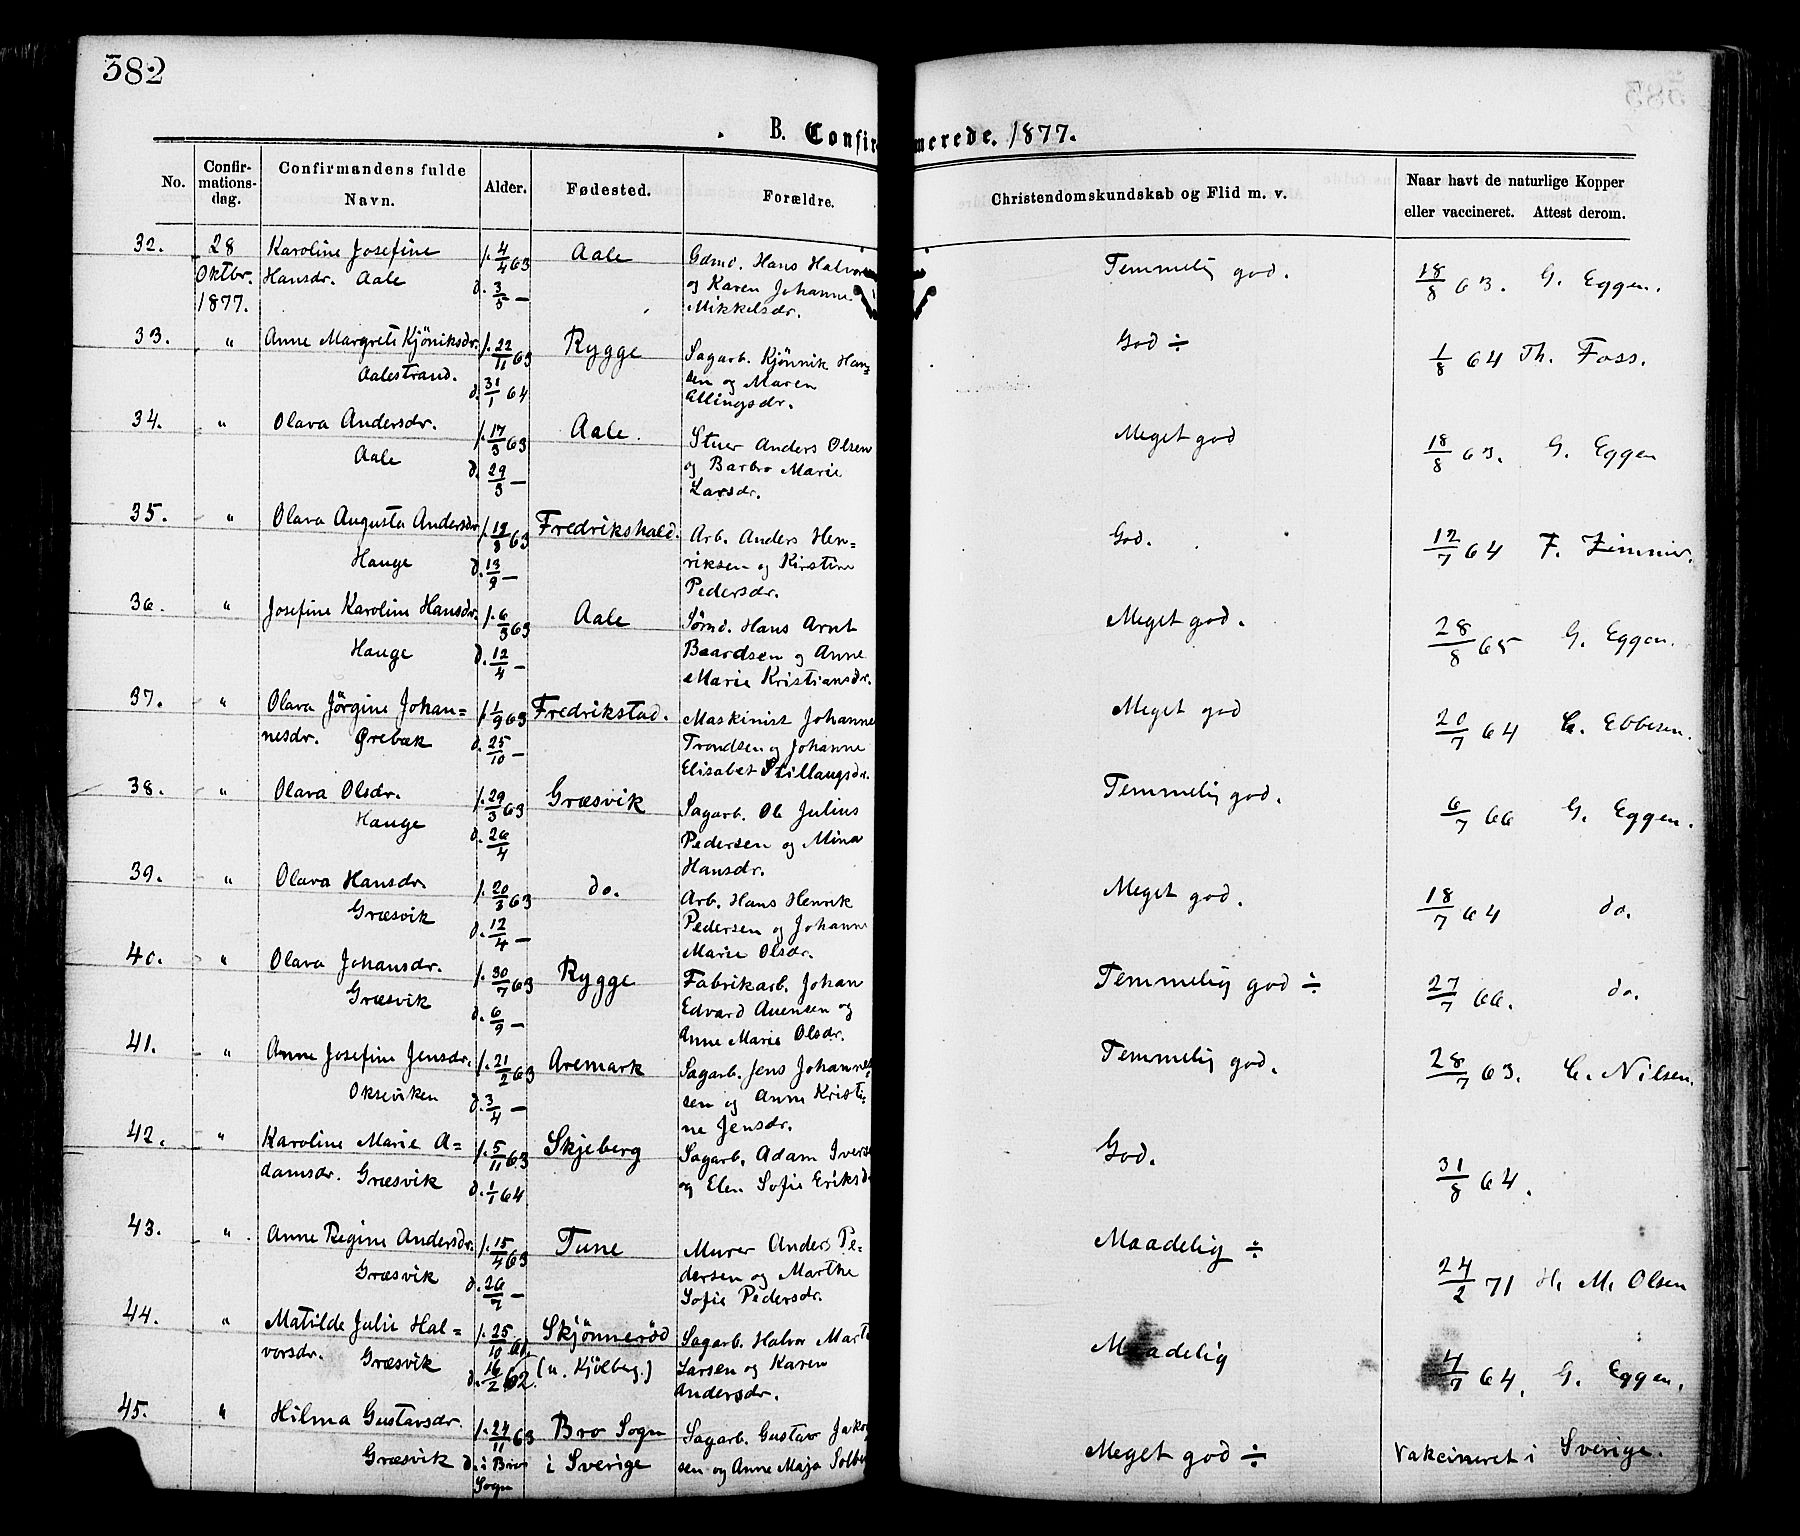 382
B. Confirmerede. 1877.
No. Confirmationsdag. Confirmandens fulde Navn. Alder. Fødested. Forældre. Christendomskundskab og Flid m. v. Naar havt de naturlige Kopper eller vaccineret. Attest derom.
32. 28 Karoline Josefine f. 4/4 63 Aale Gdmd. Hans Halvor Temmelig god. 18/8 63. G. Eggen.
Oktbr. Hansdr. Aale d. 3/5 — og Karen Johanne
1877. Mikkelsdr.
33. " Anne Margrete Kjöniksdr. f. 22/11 63 Rygge Sagarb. Kjönnik Han= God ÷ 1/8 64 Th. Foss.
Aalestrand. d. 31/1 64 sen og Maren
Allingsdr.
34. " Olava Andersdr. f. 17/3 63 Aale. Stuer Anders Olsen Meget god 18/8 63. G. Eggen
Aale d. 29/3 — og Barbro Marie
Larsdr.
35. " Olava Augusta Andersdr f. 19/8 63 Fredrikshald. Arb. Anders Hen= God. 12/7 64 F. Zimmer.
Hauge d. 13/9 — riksen og Kirstine
Pedersdr.
36. " Josefine Karoline Hansdr. f. 6/3 63 Aale Sømd. Hans Arnt Meget god. 28/8 65 G. Eggen.
Hauge d. 12/4 — Baardsen og Anne
Marie Kristiansdr.
37. " Olava Jörgine Johan= f. 1/9 63 Fredrikstad. Maskinist Johanne Meget god 20/7 64 C. Ebbesen.
nesdr. Ørebæk d. 25/10 — Trondsen og Johanne
Elisabet Stillaugsdr.
38. " Olava Olsdr. f. 29/3 63 Græsvik Sagarb. Ole Julius Temmelig god. 6/7 66 G. Eggen.
Hauge d. 26/4 Pedersen og Mina
Hansdr.
39. " Olava Hansdr. f. 20/3 63 do. Arb. Hans Henrik Meget god. 18/7 64 do.
Græsvik d. 12/4 — Pedersen og Johanne
Marie Olsdr.
40. " Olava Johansdr. f. 30/7 63 Rygge Fabrikarb. Johan Temmelig god ÷ 27/7 66. do.
Græsvik d. 6/9 — Edvard Auensen og
Anne Marie Olsdr.
41. " Anne Josefine Jensdr. f. 21/2 63 Aremark Sagarb. Jens Johannes= Temmelig god. 28/7 63. C. Nilsen.
Oksviken d. 3/4 — sen og Anne Kristi=
ne Jensdr.
42. " Karoline Marie A= f. 5/11 63 Skjeberg Sagarb. Adam Iverse God. 31/8 64.
damsdr. Græsvik d. 1/1 64 og Elen Sofie Eriksd
43. " Anne Regine Andersdr. f. 15/4 63 Tune Murer Anders Pe= Maadelig ÷ 24/2 71 H. M. Olsen
Græsvik d. 26/7 — dersen og Marthe
Sofie Pedersdr.
44. " Matilde Julie Hal= f. 25/10 61. Skjönneröd Sagarb. Halvor Mart Maadelig 4/7 64. G. Eggen.
vorsdr. Græsvik d. 16/2 62. (u. Kjölberg.) Larsen og Karen
Andersdr.
45. " Hilma Gustavsdr. f. 24/11 63 Bro Sogn Sagarb. Gustav Jakob Meget god ÷ Vakcineret i Sverige.
Græsvik d. i Bro i Sverige sen og Anne Maja Solbe
Sogn